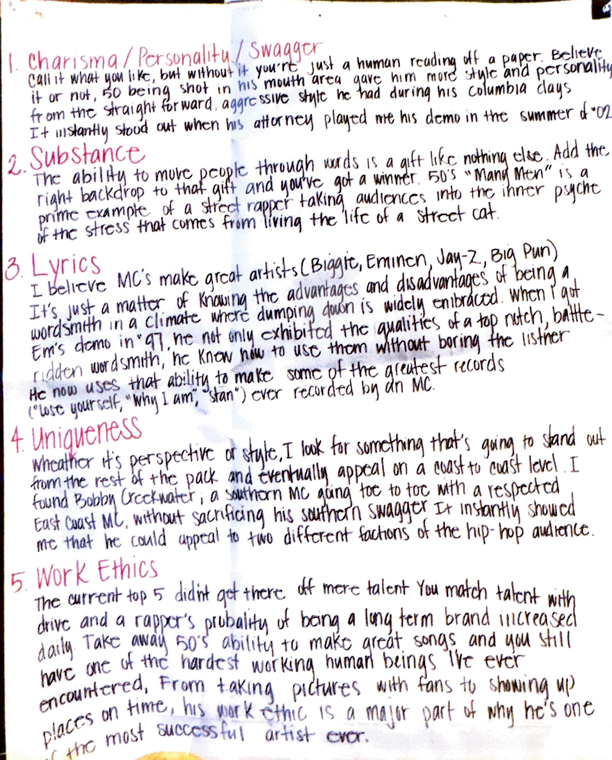 1. Charisma/Personality/Swagger
Call it what you like, but without it you're just a human reading off a paper. Believe
it or not, 50 being shot in his mouth area gave him more style and personality
from the straight forward, aggressive style he had during his columbia days
It instantly stood out when his attorney played me his demo in the summer of "02
2. Substance
The ability to move people through words is a gift like nothing else. Add the
right backdrop to that gift and you've got a winner. 50's "Many Men" is a
prime example of a street rapper taking audiences into the inner psyche
of the stress that comes from living the life of a street cat.
3. Lyrics
I believe MC's make great artists (Biggie, Eminen, Jay-Z, Big Pun)
It's just a matter of knowing the advantages and disadvantages of being a
wordsmith in a climate where dumping down is widely embraced. When I got
Em's demo in '97, he not only exhibited the qualities of a top notch, battle-
ridden wordsmith, he knew how to use them without boring the listner
He now uses that ability to make some of the greatest records
("Lose yourself, "Why I am", "Stan") ever recorded by an MC.
4. Uniqueness
Wheather it's perspective or style, I look for something that's going to stand out
from the rest of the pack and eventually appeal on a coast to coast level. I
found Bobby Creekwater, a southern MC going toe to toe with a respected
East Coast MC, without sacrificing his southern swagger It instantly showed
me that he could appeal to two different factions of the hip-hop audience.
5. Work Ethics
The current top 5 didn't get there off mere talent You match talent with
drive and a rapper's probality of being a long term brand increased
daily. Take away 50's ability to make great songs and you still
have one of the hardest working human beings I've ever
encountered, From taking pictures with fans to showing up
places on time, his work ethic is a major part of why he's one
of the most successful artist ever.